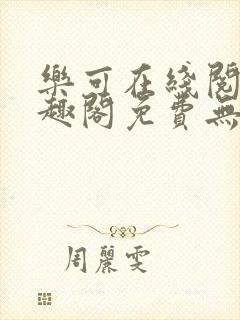 樂可在綫閱
趣閣免費無
周麗雯